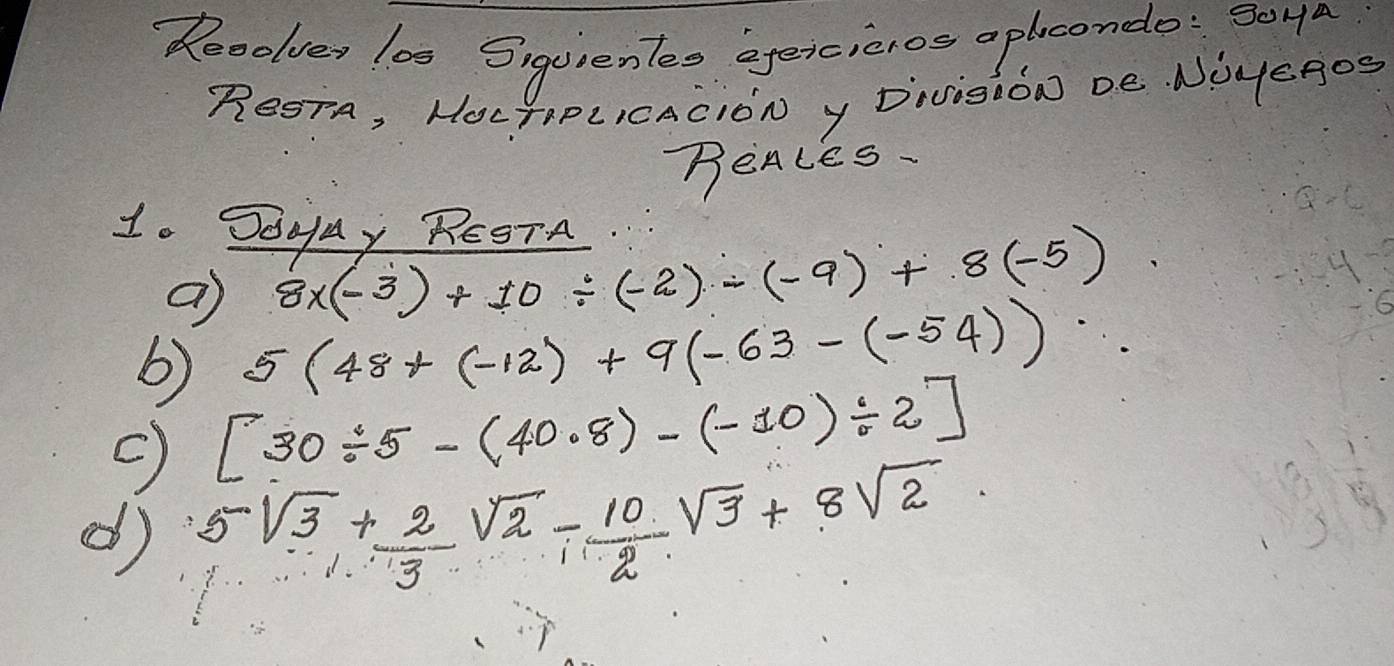 Resolver los Siguientes ejercicios aplicando: SUMA
RESTA, MULTIPLICACIÓN y DIVISIÓN DE NÚMEROS
REALES.
1. SUMA y RESTA
a) 8x(-3) + 10 ÷ (-2) - (-9) + 8(-5)
b) 5(48 + (-12) + 9(-63 - (-54))
c) [30 ÷ 5 - (40.8) - (-10) ÷ 2]
d) 5√3 + 2/3 √2 - 10/2 √3 + 8√2